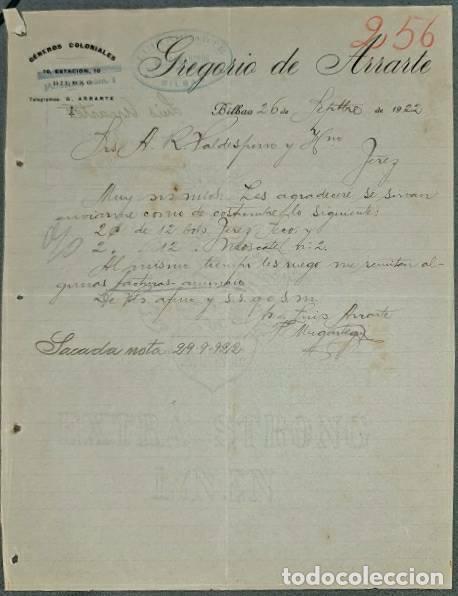 256
GÉNEROS COLONIALES
10, ESTACIÓN, 10
BILBAO
Telegramas: G. ARRARTE
BILBAO
Gregorio de Arrarte
Bilbao 26 de Septbre de 1922
Srs A. R. Valdespino y Hno
Jerez
Muy Srs mios: Les agradeceré se sirvan
enviarme como de costumbre lo siguiente:
2 de 12 bots Jerez Seco y
2 " 12 " Moscatel nº 2
Al mismo tiempo les ruego me remitan al-
gunas facturas-anuncio
De Vds afmo y s.s. q e s m
Luis Arrarte
Sacada nota 29-9-922
todocoleccion.net